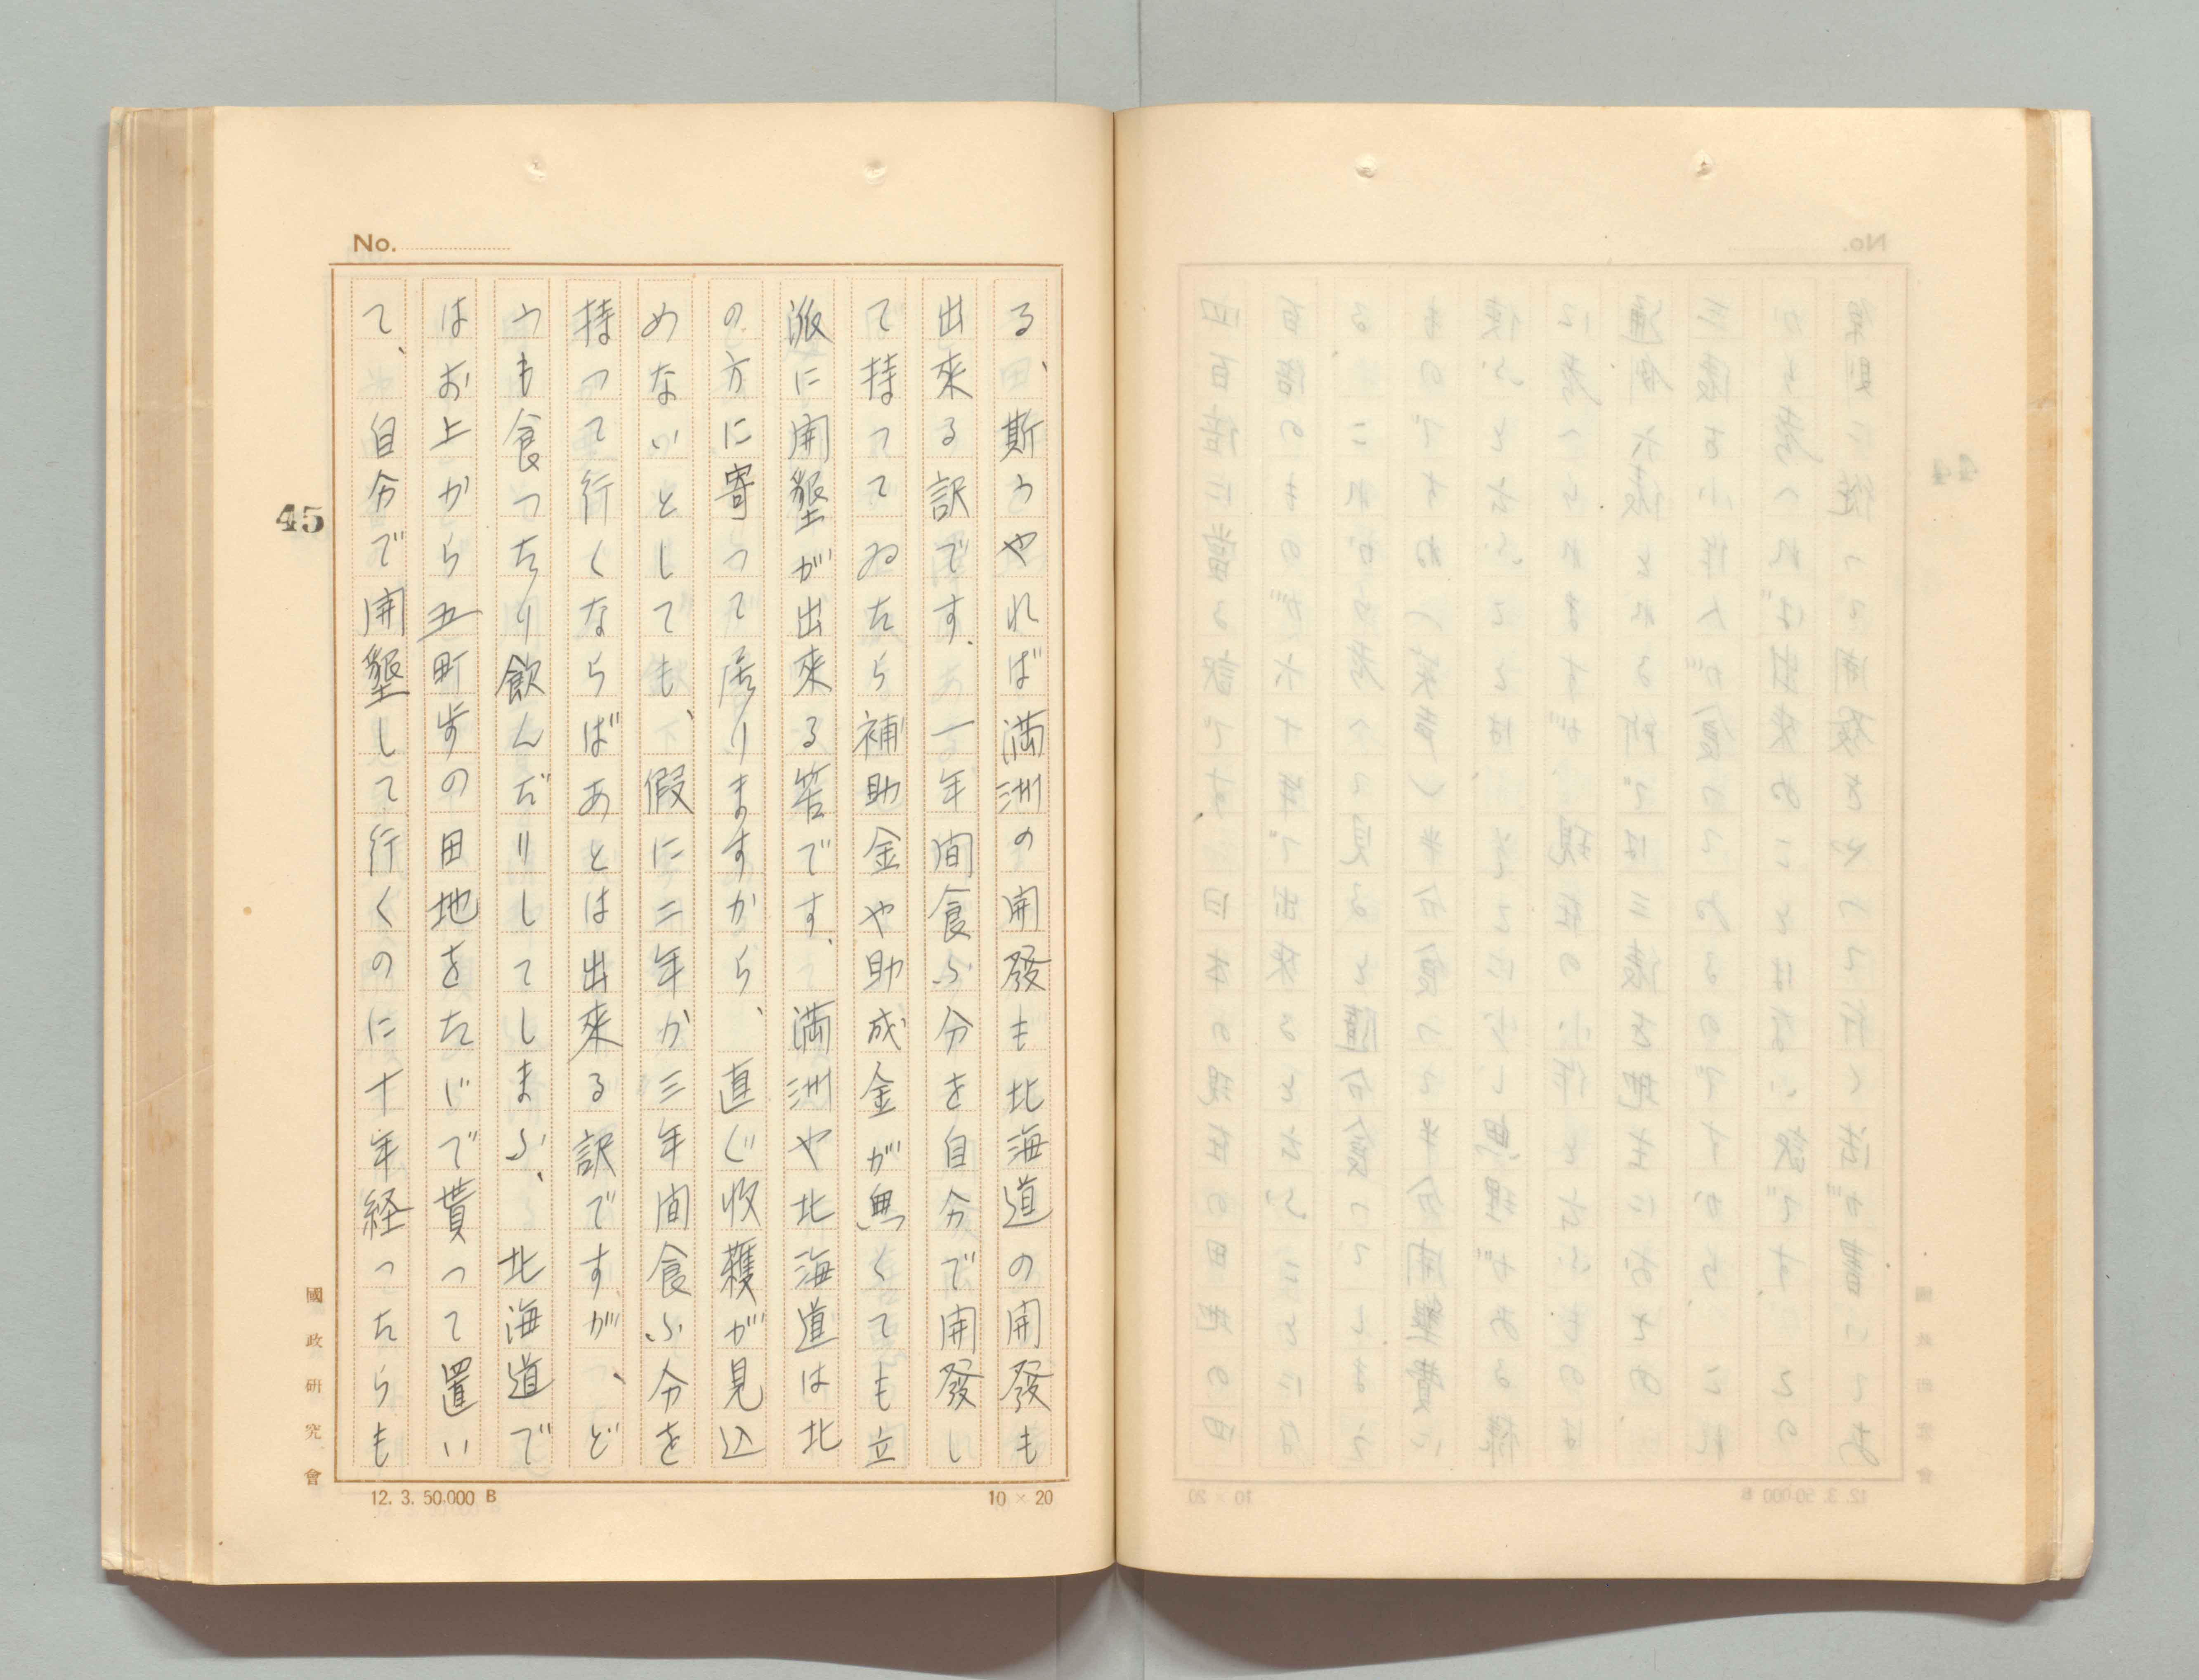 No.
る、斯うやれば満洲の開發も北海道の開發も
出來る訳です、一年間食ふ分を自分で開發し
て持ってゐたら補助金や助成金が無くても立
派に開墾が出來る筈です、満洲や北海道は北
の方に寄って居りますから、直ぐ收穫が見込
めないとしても、假に二年か三年間食ふ分を
持って行くならばあとは出來る訳ですが、ど
うも食ったり飲んだりしてしまふ、北海道で
はお上から五町歩の田地をたゞで貰って置い
て、自分で開墾して行くのに十年経ったらも
45
國政研究會
12. 3. 50,000 B
10 × 20